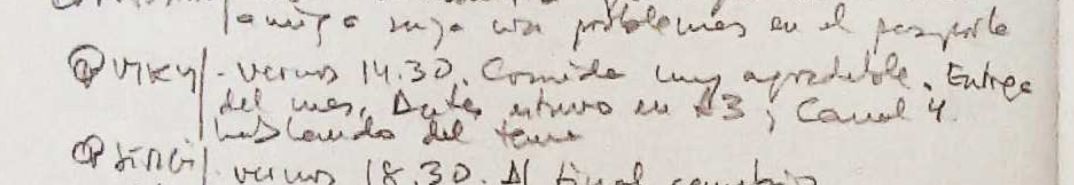 amigo suyo con problemas en el pasaporte
VIKY/- vernos 14.30. Comida muy agradable. Entrega
del mes. Antes estuvo en A3 y Canal 4.
hablando del tema
SERGI/ vernos 18.30. Al final